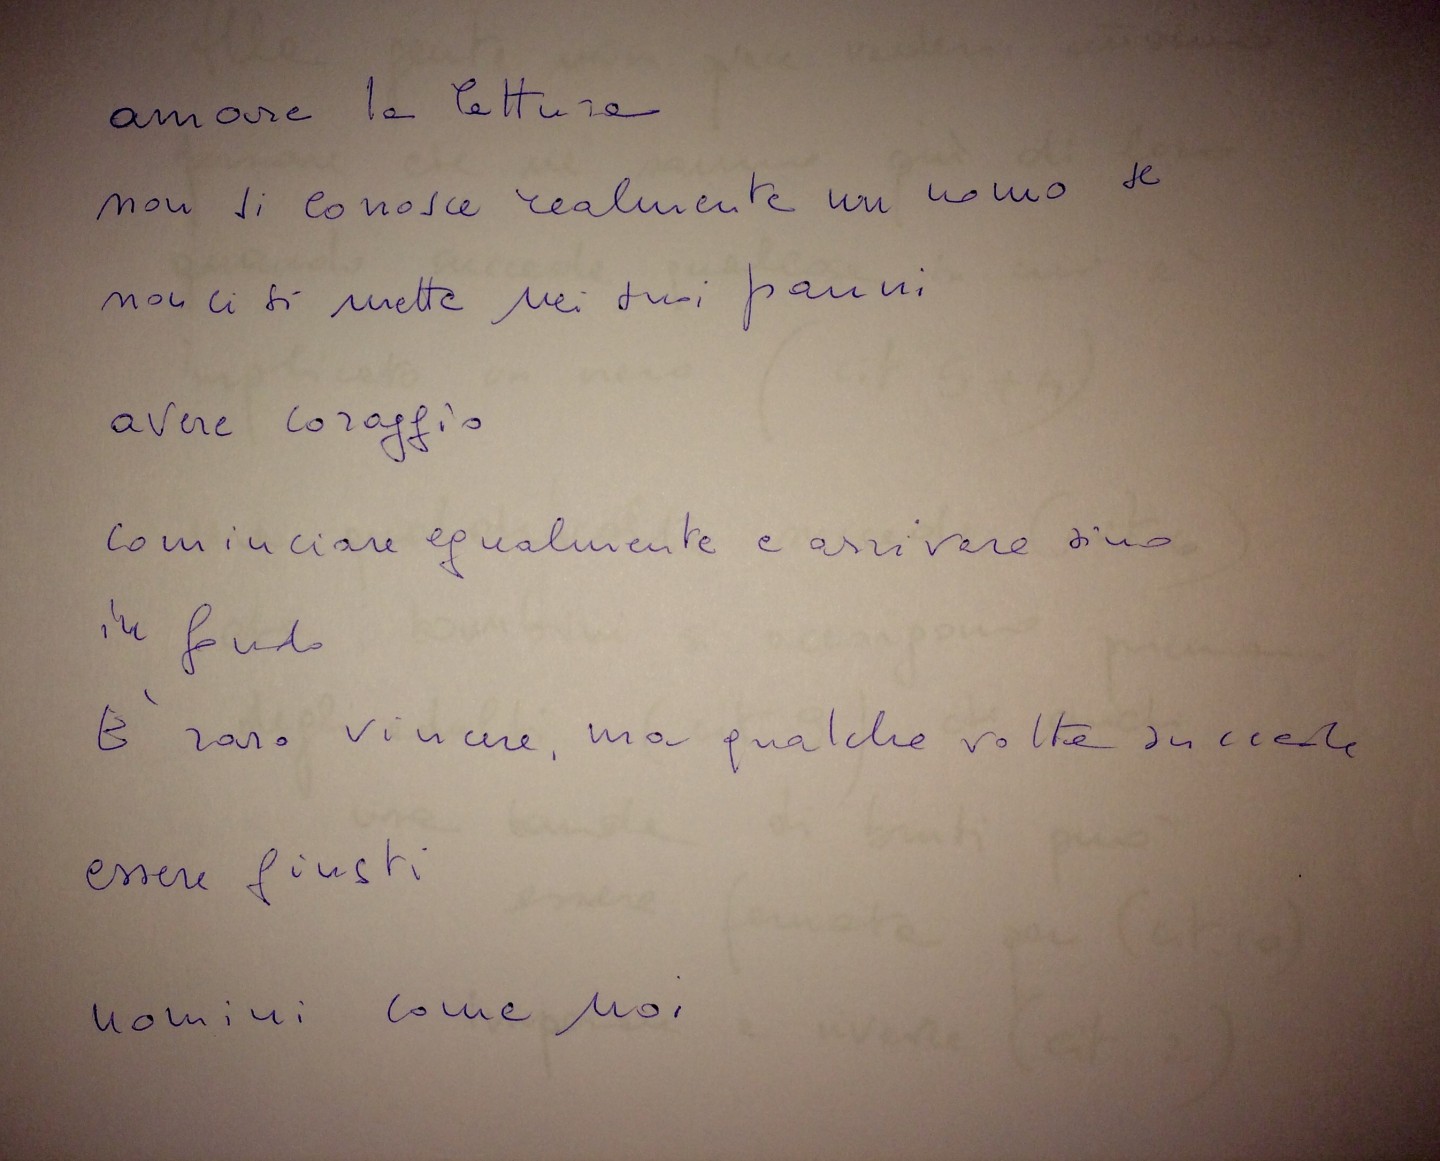 amare la lettura
non si conosce realmente un uomo se
non ci si mette nei suoi panni
avere coraggio
cominciare egualmente e arrivare sino
in fondo
E' raro vincere, ma qualche volta succede
essere giusti
uomini come noi